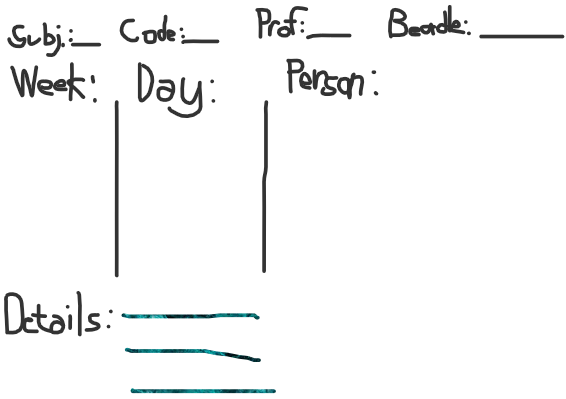 Subj.:__ Code:__ Prof:__ Beadle:__
Week: Day: Person:
Details: